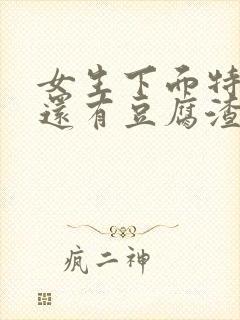 女生下面特
還有豆腐渣
疯二神